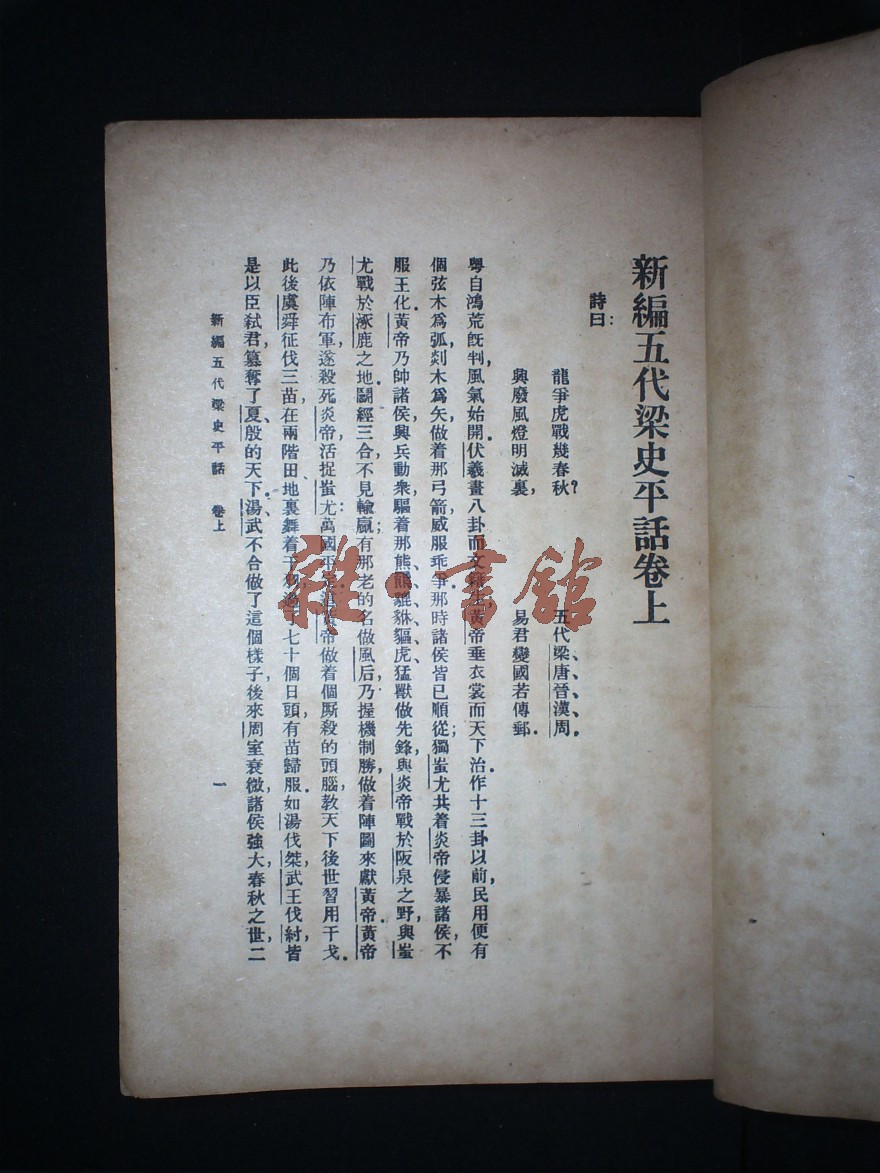 新編五代梁史平話卷上
詩曰：
龍爭虎戰幾春秋？五代梁、唐、晉、漢、周．
興廢風燈明滅裏，易君變國若傳郵．
粤自鴻荒旣判，風氣始開，伏羲畫八卦而文籍生，黃帝垂衣裳而天下治．作十三卦以前，民用便有
個弦木爲弧，剡木爲矢，做着那弓箭，威服乖爭．那時諸侯皆已順從；獨蚩尤共着炎帝侵暴諸侯，不
服王化．黃帝乃帥諸侯，興兵動衆，驅着那熊、羆、貔、貅、貙、虎猛獸做先鋒，與炎帝戰於阪泉之野，與蚩
尤戰於涿鹿之地．鬭經三合，不見輸贏；有那老的名做風后，乃握機制勝，做着陣圖來獻黃帝．黃帝
乃依陣布軍，遂殺死炎帝，活捉蚩尤：萬國平定．這黃帝做着個厮殺的頭腦，教天下後世習用干戈．
此後虞舜征伐三苗，在兩階田地裏舞着干羽，過了七十個日頭，有苗歸服．如湯伐桀，武王伐紂，皆
是以臣弒君，篡奪了夏、殷的天下．湯、武不合做了這個樣子，後來周室衰微，諸侯強大，春秋之世二
新編五代梁史平話 卷上
一
雜·書館